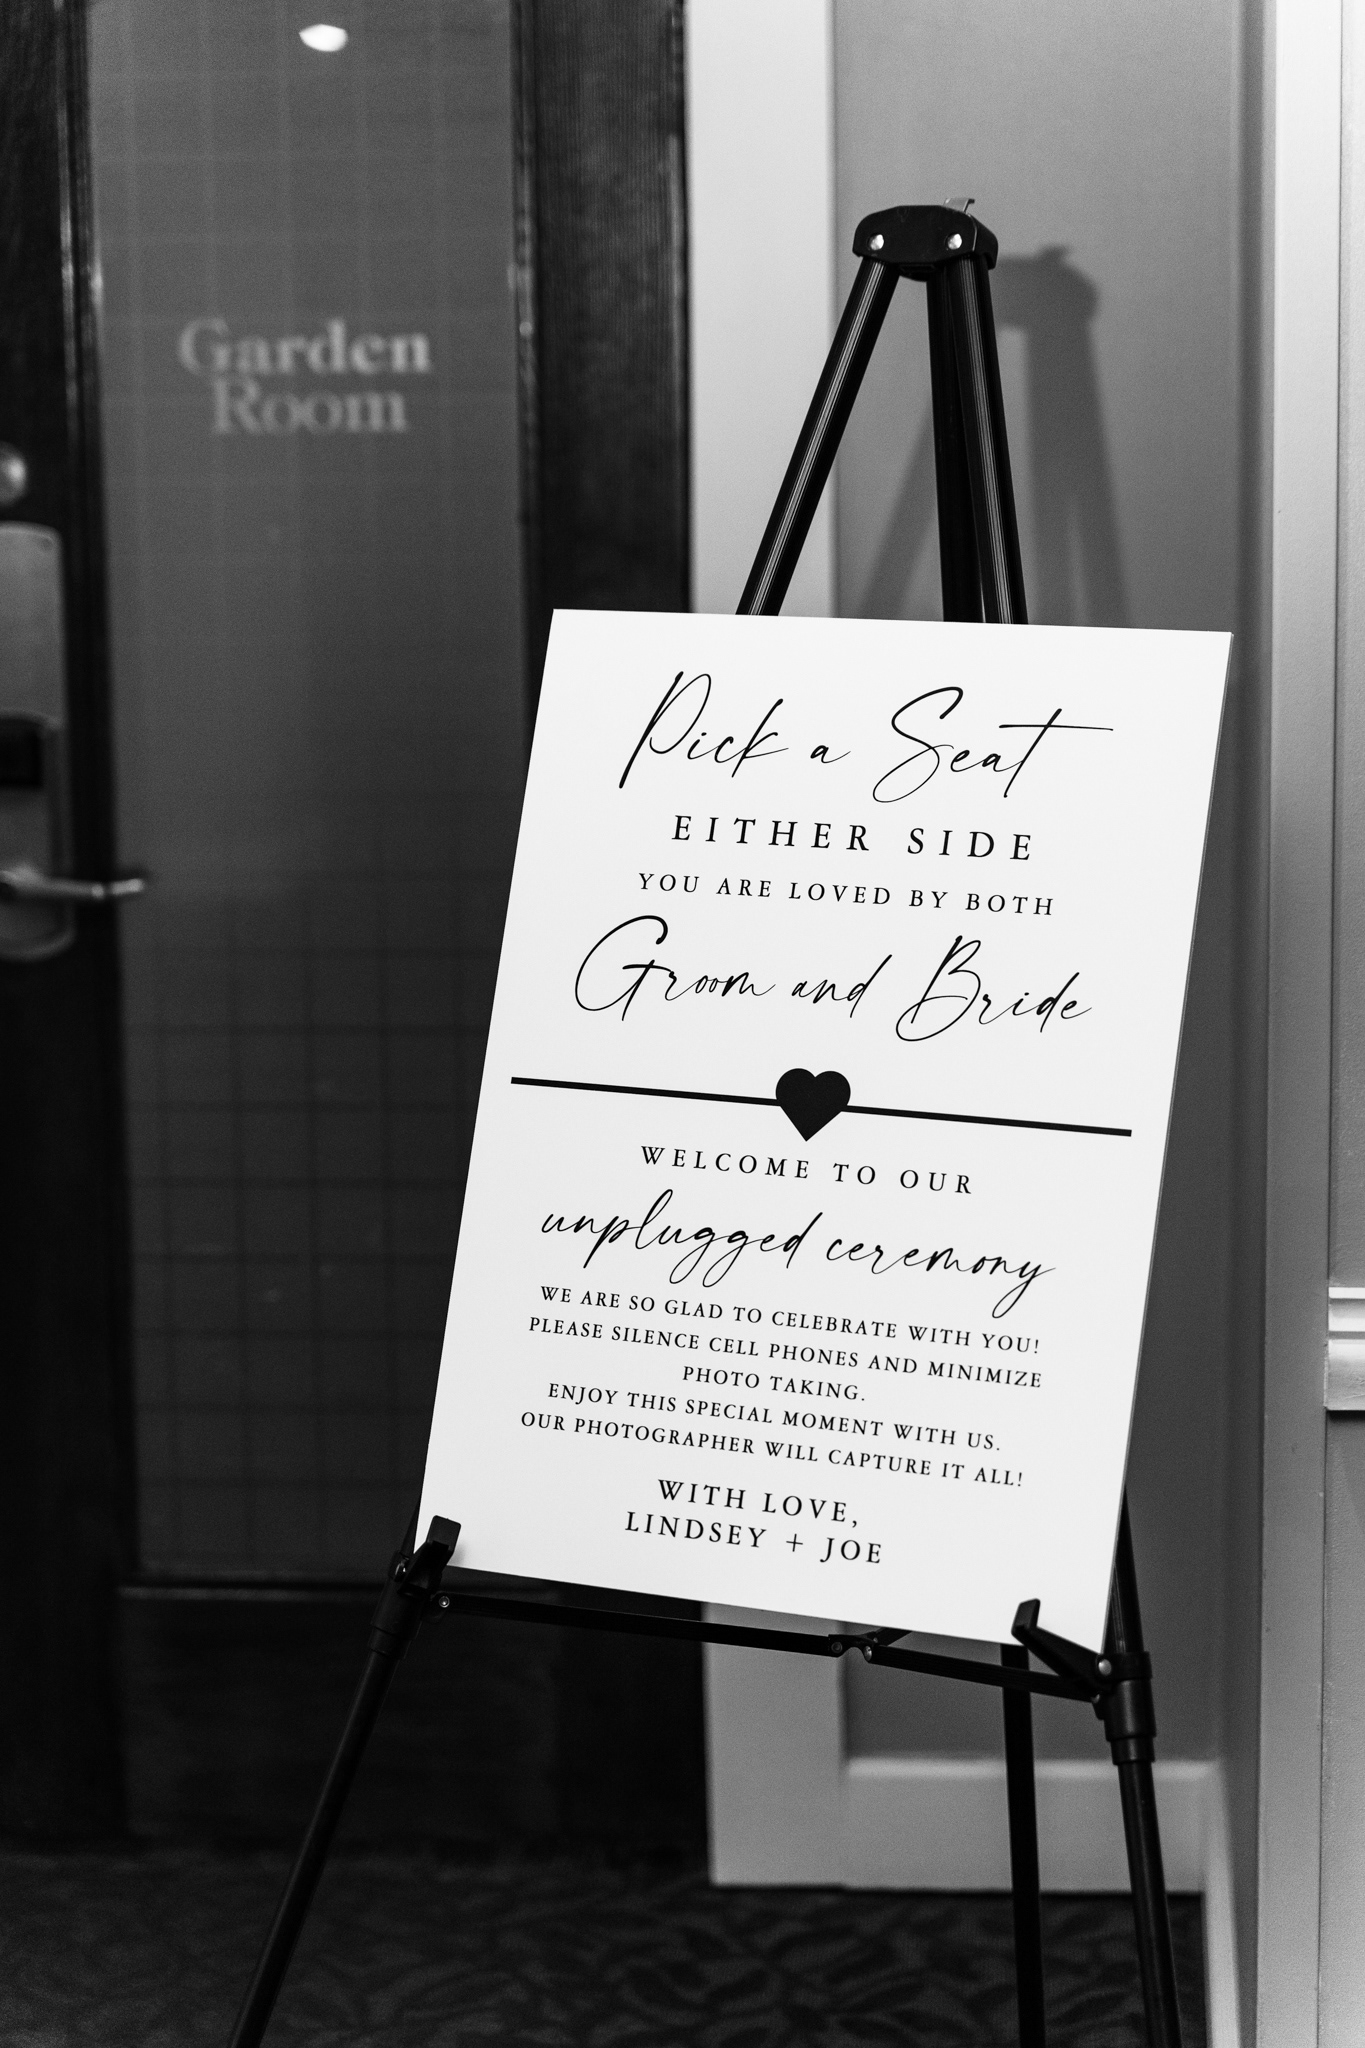 Garden
Room
Pick a Seat
EITHER SIDE
YOU ARE LOVED BY BOTH
Groom and Bride
WELCOME TO OUR
unplugged ceremony
WE ARE SO GLAD TO CELEBRATE WITH YOU!
PLEASE SILENCE CELL PHONES AND MINIMIZE
PHOTO TAKING.
ENJOY THIS SPECIAL MOMENT WITH US.
OUR PHOTOGRAPHER WILL CAPTURE IT ALL!
WITH LOVE,
LINDSEY + JOE